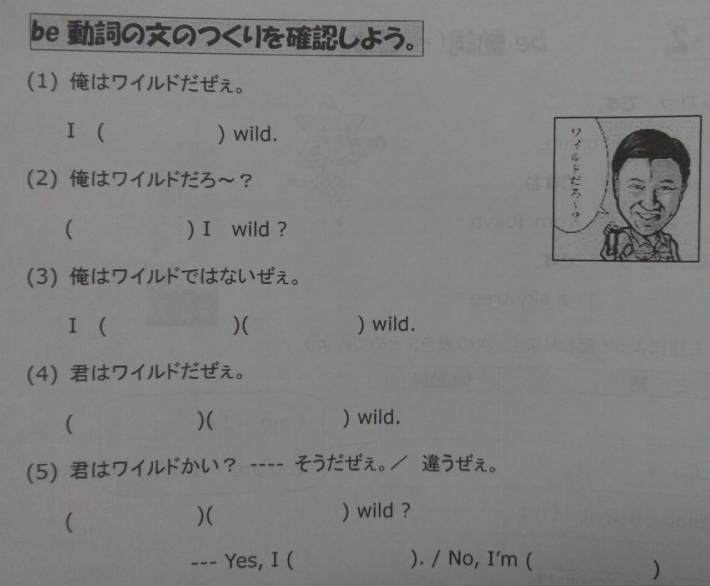 be 動詞の文のつくりを確認しよう。
(1) 俺はワイルドだぜぇ。
I ( ) wild.
ワイルドだろ～？
(2) 俺はワイルドだろ～？
( ) I wild ?
(3) 俺はワイルドではないぜぇ。
I ( )( ) wild.
(4) 君はワイルドだぜぇ。
( )( ) wild.
(5) 君はワイルドかい？ ---- そうだぜぇ。／ 違うぜぇ。
( )( ) wild ?
--- Yes, I ( ). / No, I'm ( )